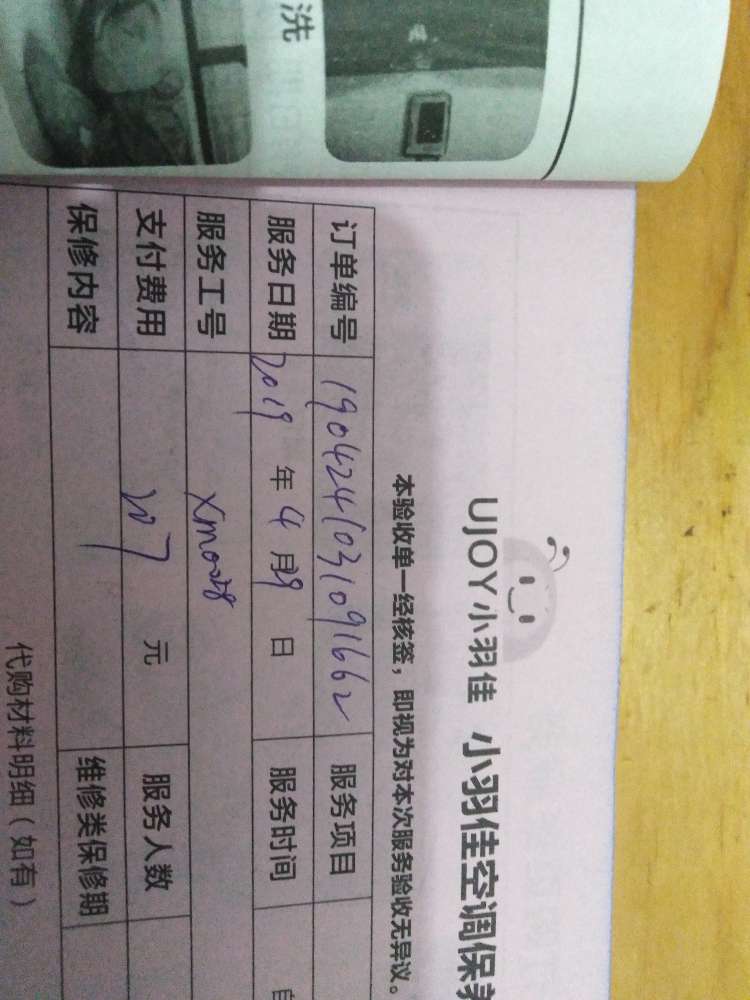 洗
UJOY小羽佳 小羽佳空调保养
本验收单一经核签，即视为对本次服务验收无异议。
订单编号 1904241031091662 服务项目
服务日期 2019 年 4 月 29 日 服务时间 自
服务工号 Xm0058
支付费用 207 元 服务人数
保修内容 维修类保修期
代购材料明细（如有）